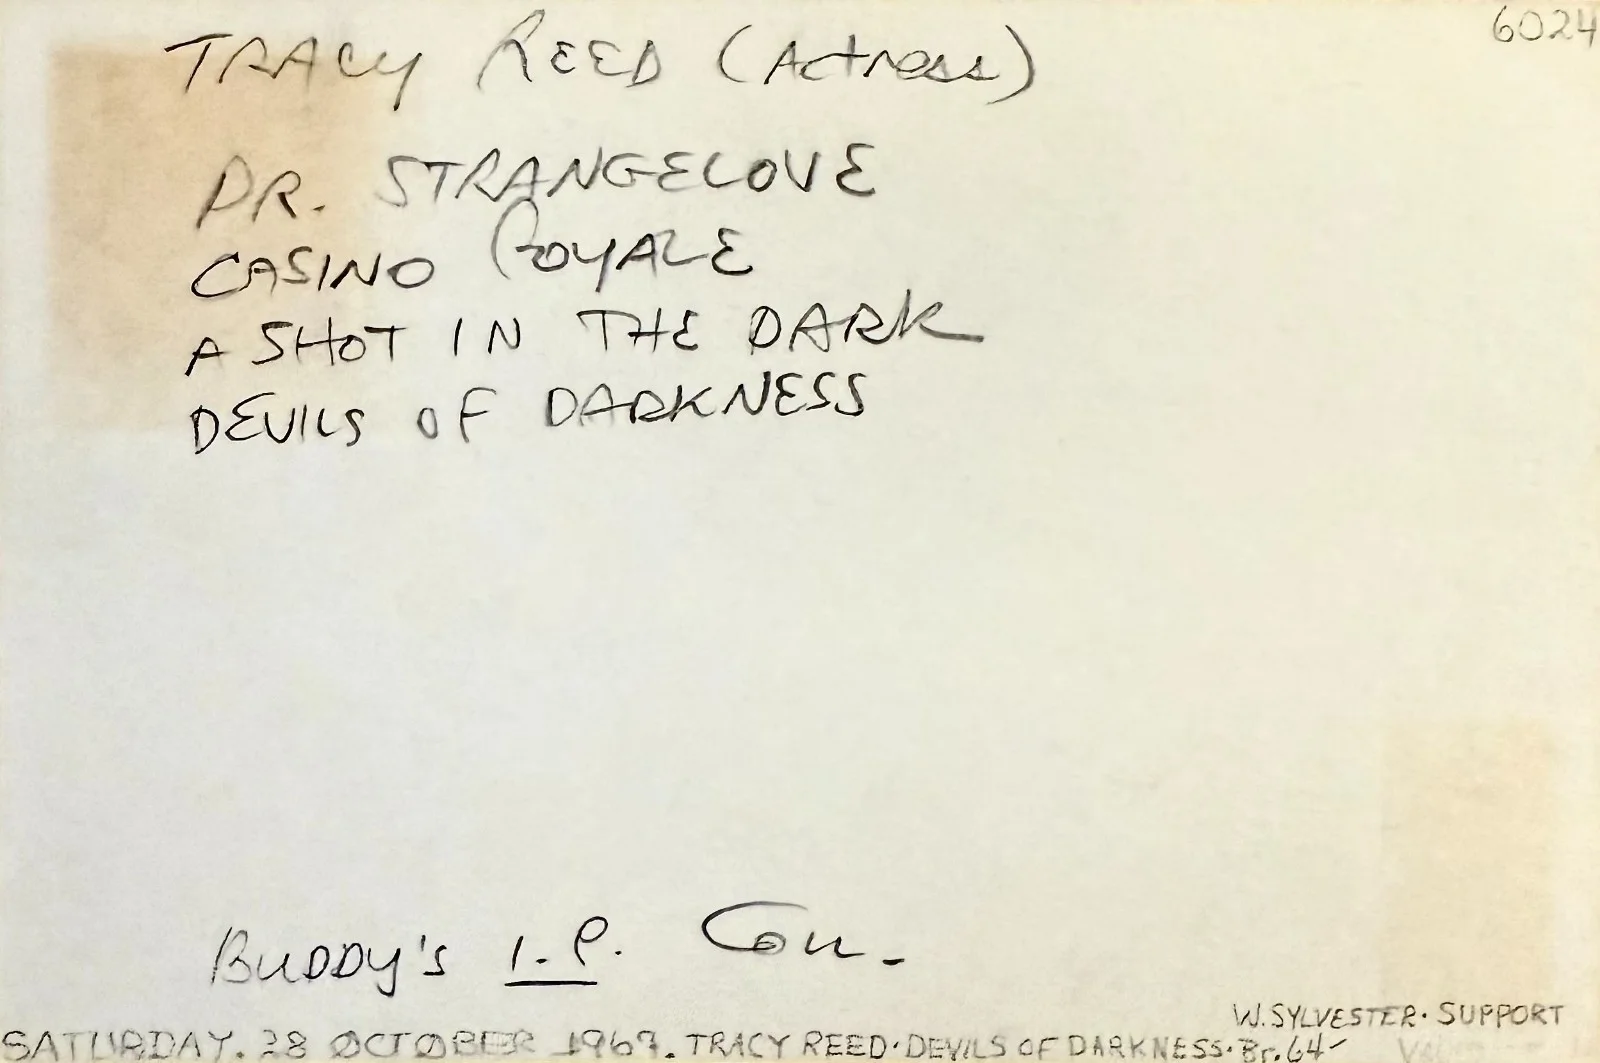 6024
TRACY REED (Actress)
DR. STRANGELOVE
CASINO ROYALE
A SHOT IN THE DARK
DEVILS OF DARKNESS
BUDDY'S I.P. Coll.
W. SYLVESTER · SUPPORT
SATURDAY. 28 OCTOBER 1967. TRACY REED · DEVILS OF DARKNESS · Br. 64